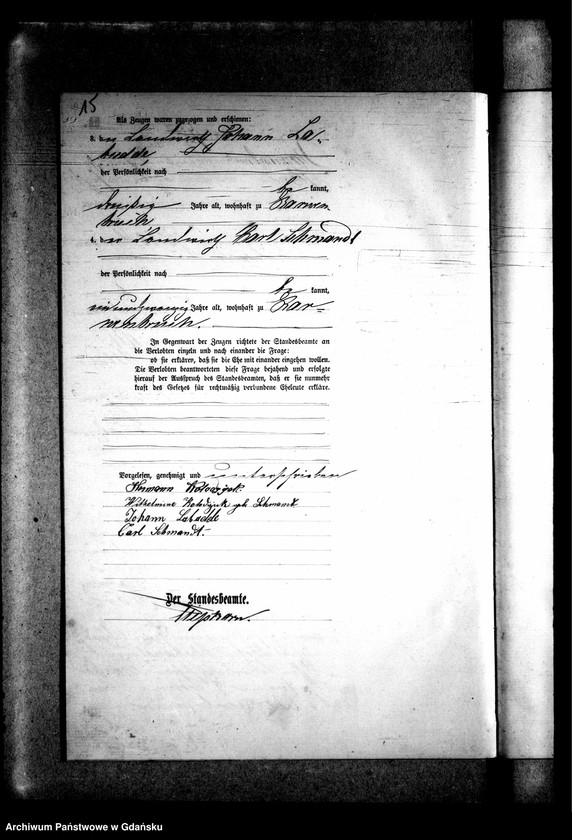 15
Als Zeugen waren zugezogen und erschienen:
3. der Landwirth Johann La-
budde,
der Persönlichkeit nach
be kannt,
dreißig Jahre alt, wohnhaft zu
bruch
4. der Landwirth Karl Schmandt
der Persönlichkeit nach
be kannt,
einundzwanzig Jahre alt, wohnhaft zu Kar-
menbruch.
In Gegenwart der Zeugen richtete der Standesbeamte an
die Verlobten einzeln und nach einander die Frage:
ob sie erklären, daß sie die Ehe mit einander eingehen wollen.
Die Verlobten beantworteten diese Frage bejahend und erfolgte
hierauf der Ausspruch des Standesbeamten, daß er sie nunmehr
kraft des Gesetzes für rechtmäßig verbundene Eheleute erkläre.
Vorgelesen, genehmigt und unterschrieben
Hermann
Wilhelmine geb Schmandt
Johann Labudde
Carl Schmandt.
Der Standesbeamte.
Archiwum Państwowe w Gdańsku